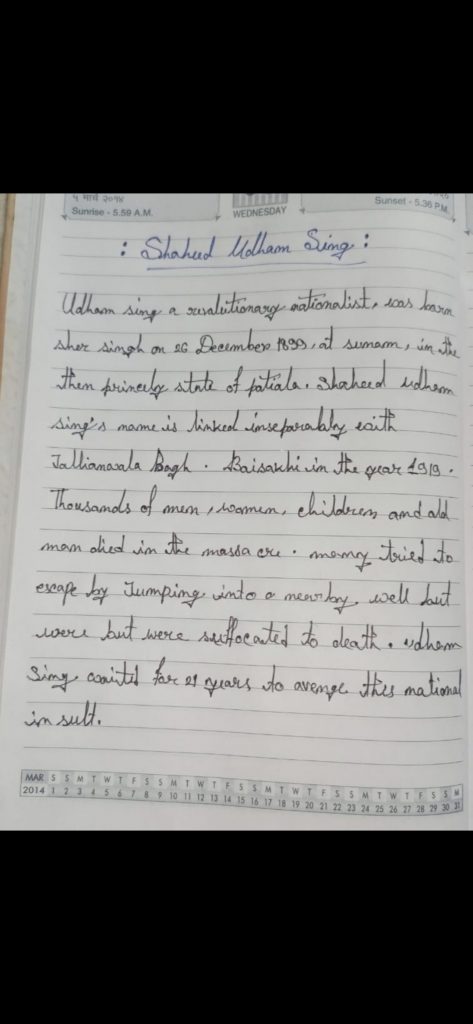 ५ मार्च २०१४
Sunrise - 5.59 A.M.
WEDNESDAY
Sunset - 5.36 P.M.
: Shaheed Udham Sing :
Udham sing a revolutionary nationalist, was born
sher singh on 26 December 1899, at sunam, in the
then princely state of patiala. Shaheed udham
sing's name is linked inseparably with
Jallianwala Bagh. Baisakhi in the year 1919.
Thousands of men, women, children and old
man died in the massacre. many tried to
escape by Jumping into a nearby well but
were but were suffocated to death. udham
Sing waited for 21 years to avenge this national
in sult.
MAR S S M T W T F S S M T W T F S S M T W T F S S M T W T F S S M
2014 1 2 3 4 5 6 7 8 9 10 11 12 13 14 15 16 17 18 19 20 21 22 23 24 25 26 27 28 29 30 31